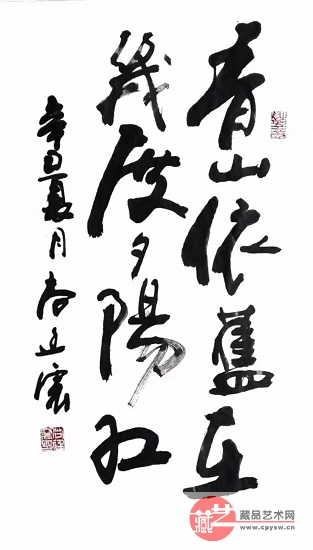 青山依舊在
幾度夕陽紅
辛丑夏月
藏艺
藏品艺术网
www.cpysw.cn